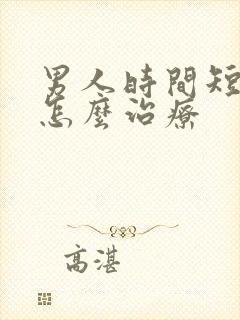 男人時間短
怎麼治療
高湛